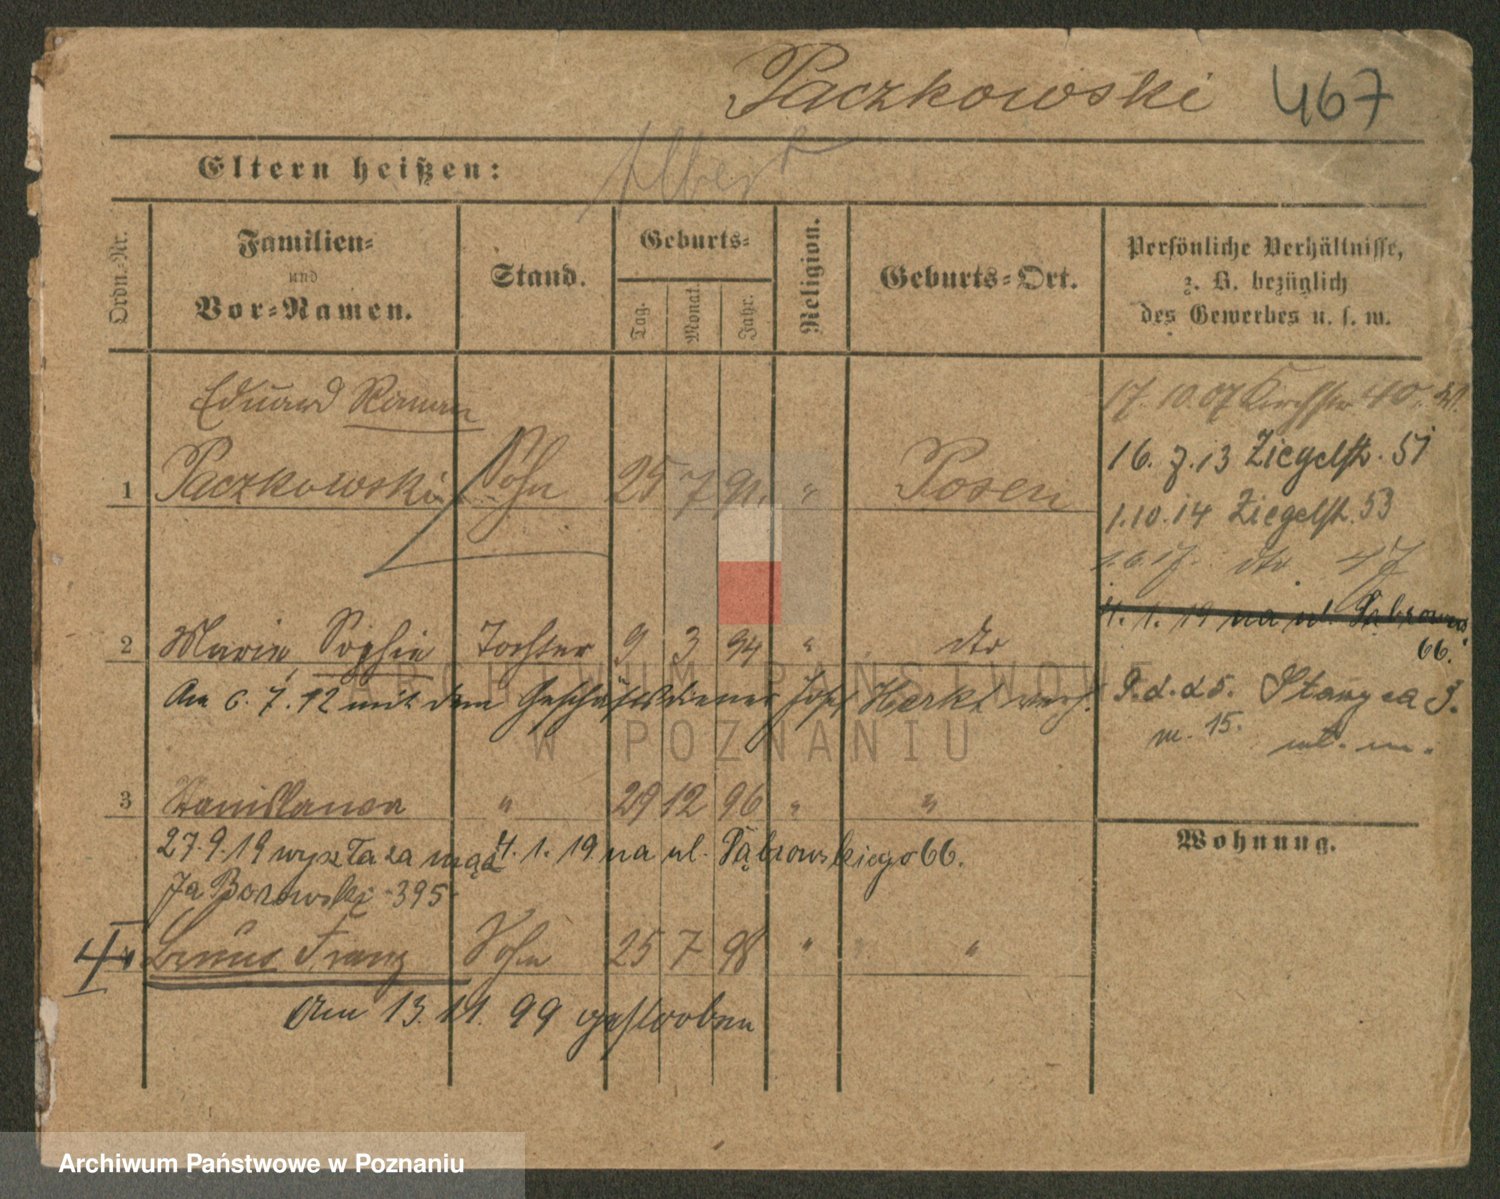 Paczkowski 467
Eltern heißen: Albert
Ordn.-Nr.
Familien-
und
Vor-Namen.
Stand.
Geburts-
Tag.
Monat.
Jahr.
Religion.
Geburts-Ort.
Persönliche Verhältnisse,
z. B. bezüglich
des Gewerbes u. s. w.
Eduard Roman
1 Paczkowski Sohn 25 7 91. " Posen
17.10.07 40.
16.7.13 Ziegelstr. 51
1.10.14 Ziegelstr. 53
1.6.17. dto 47
4.1.19 na ul. Dąbrows
66.
2 Maria, Sophie Tochter 9 3 94 " dto
Am 6.7.12 mit dem Geschäftsdiener Josef Herkt verh.
P.d.d5. Stanz ca 3.
m. 15. ul. m.
3 Stanislawa " 29 12 96 " "
27.9.19 wyszła za mąż 4.1.19 na ul. Dąbrowskiego 66.
Ja Borowski -395-
Wohnung.
4 Bruno Franz Sohn 25 7 98 " "
Am 13.11.99 gestorben
ARCHIWUM PAŃSTWOWE
W POZNANIU
Archiwum Państwowe w Poznaniu